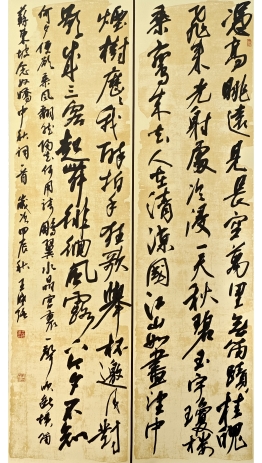 憑高眺遠見長空萬里無留蹟桂魄
飛來光射處冷浸一天秋碧玉宇瓊樓
乘鸞來去人在清涼國江山如畫望中
煙樹歷歷我醉拍手狂歌舉杯邀月對
影成三客起舞徘徊風露下今夕不知
何夕便欲乘風翻然歸去何用騎鵬翼水晶宮裏一聲吹斷橫笛
蘇東坡念奴嬌中秋詞一首 歲次甲辰秋 王